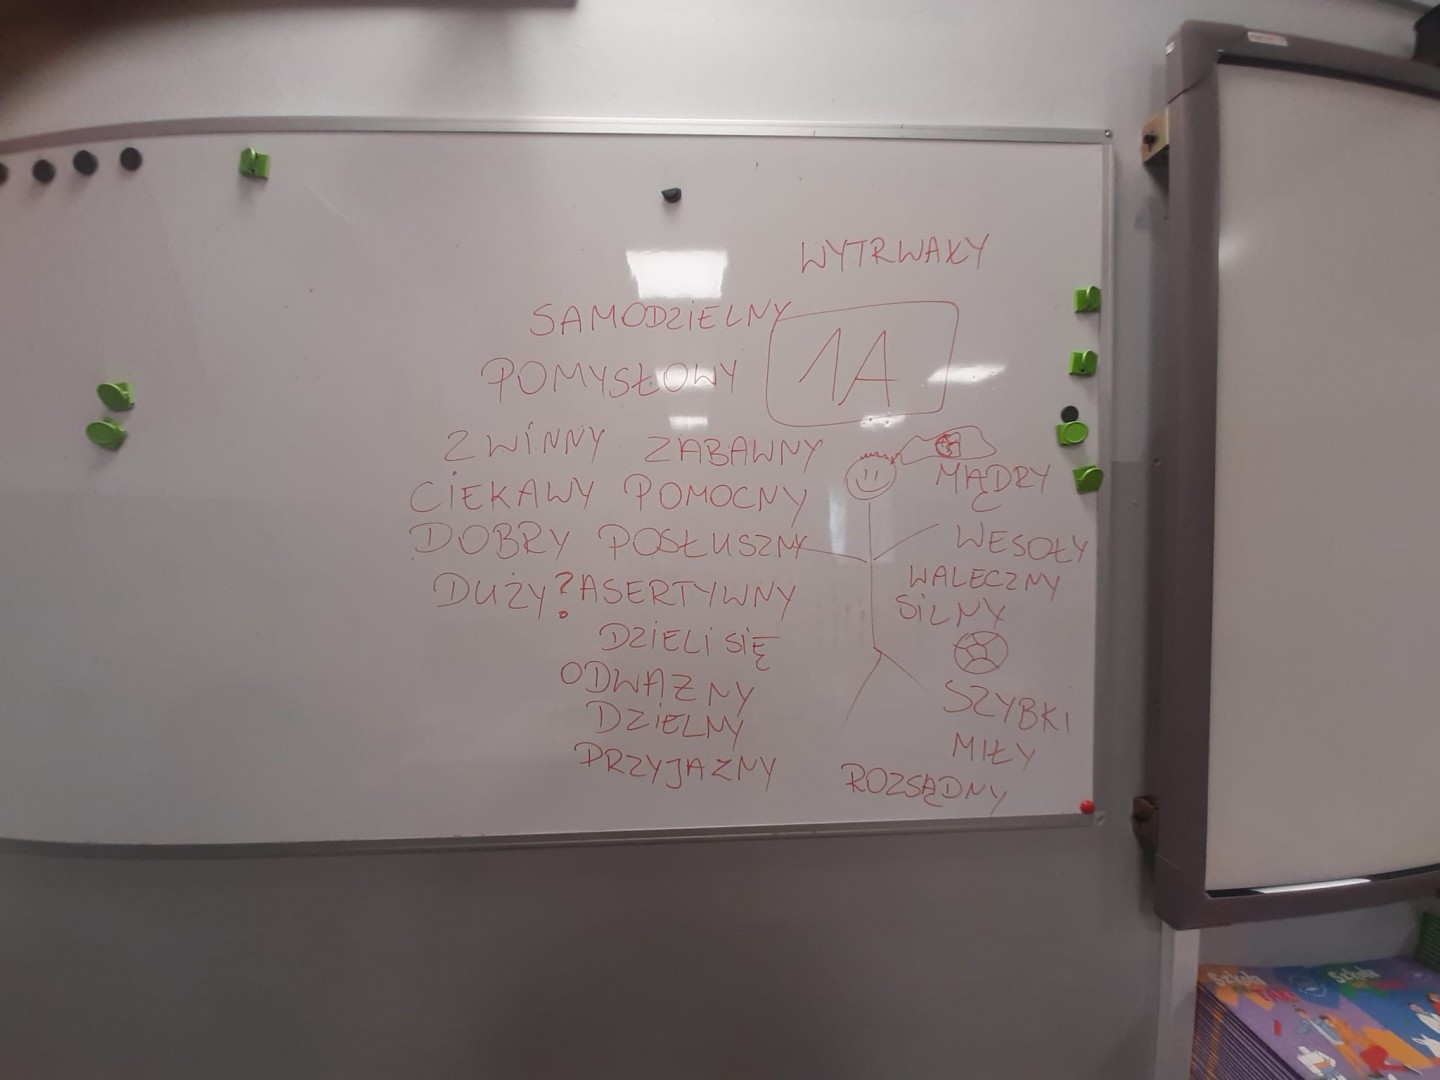 WYTRWAŁY
SAMODZIELNY
1A
POMYSŁOWY
ZWINNY ZABAWNY
MĄDRY
CIEKAWY POMOCNY
DOBRY POSŁUSZNY
WESOŁY
DUŻY? ASERTYWNY
WALECZNY
SILNY
DZIELI SIĘ
ODWAŻNY
SZYBKI
DZIELNY
MIŁY
PRZYJAZNY
ROZSĄDNY
Szkoła
Szkoła